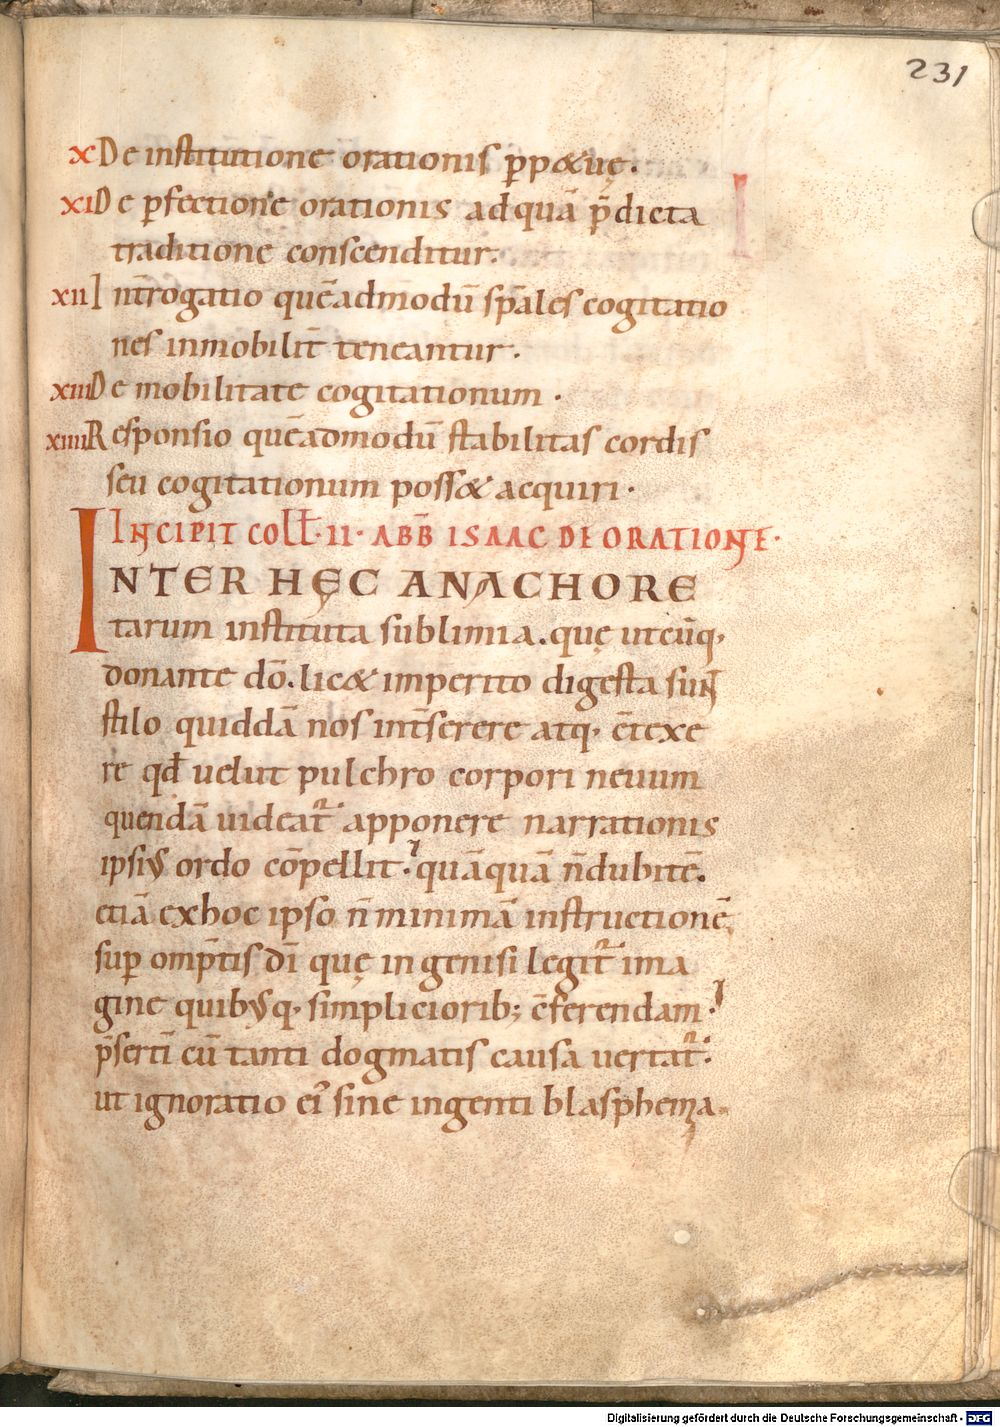 231
X De institutione orationis ꝑp&uę.
XI De ꝑfectione orationis adquā p̄dicta
traditione conscenditur.
XII Int̄rogatio quēadmodū sp̄ales cogitatio
nes inmobilit̄ teneantur.
XIII De mobilitate cogitationum.
XIIII Responsio quēadmodū stabilitas cordis
seu cogitationum poss& acquiri.
INCIPIT COLL̄·II· ABB̄ ISAAC DE ORATIONE·
INTER HĘC ANACHORE
tarum instituta sublimia. quę utcūq;
donante dō. lic& imperito digesta sunt
stilo quiddā nos int̄serere atq; c̄texe
re qđ uelut pulchro corpori neuum
quendā uideat᷑ apponere narrationis
ipsius ordo cōpellit. quāquā n̄ dubitē.
etiā ex hoc ipso n̄ minimā instructionē
suꝑ omp̄tis dī quę in genisi legit᷑ ima
gine quibusq; simpliciorib; c̄ferendam.
p̄sertī cū tanti dogmatis causa uertat᷑.
ut ignoratio ei᷒ sine ingenti blasphemia
Digitalisierung gefördert durch die Deutsche Forschungsgemeinschaft - DFG